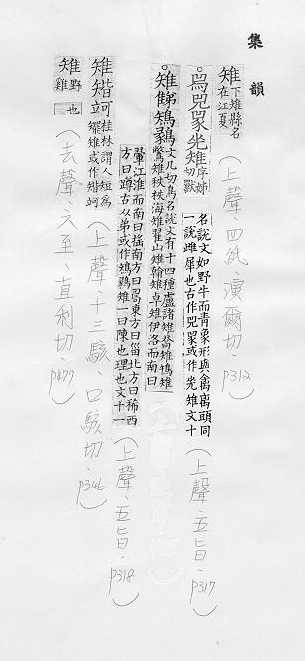 集韻
雉 下雉縣名在江夏（上聲、四紙、演爾切、p312）
𤉡兕𧰽光雉 序姊切獸名說文如野牛而青象形與禽离頭同一說雌犀也古作兕𧰽或作光雉文十（上聲、五旨、p317）
雉 文几切鳥名說文有十四種盧諸雉喬雉鳪雉鷩雉秩秩海雉翟山雉翰雉卓雉伊洛而南曰翬江淮而南曰搖南方曰東方曰甾北方曰稀西方曰蹲古从弟或作雉一曰陳也理也文十一（上聲、五旨、p318）
雉 桂林謂人短為雉或作（上聲、十三駭、口駭切、p346）
雉 野雞也（去聲、六至、直利切、p477）